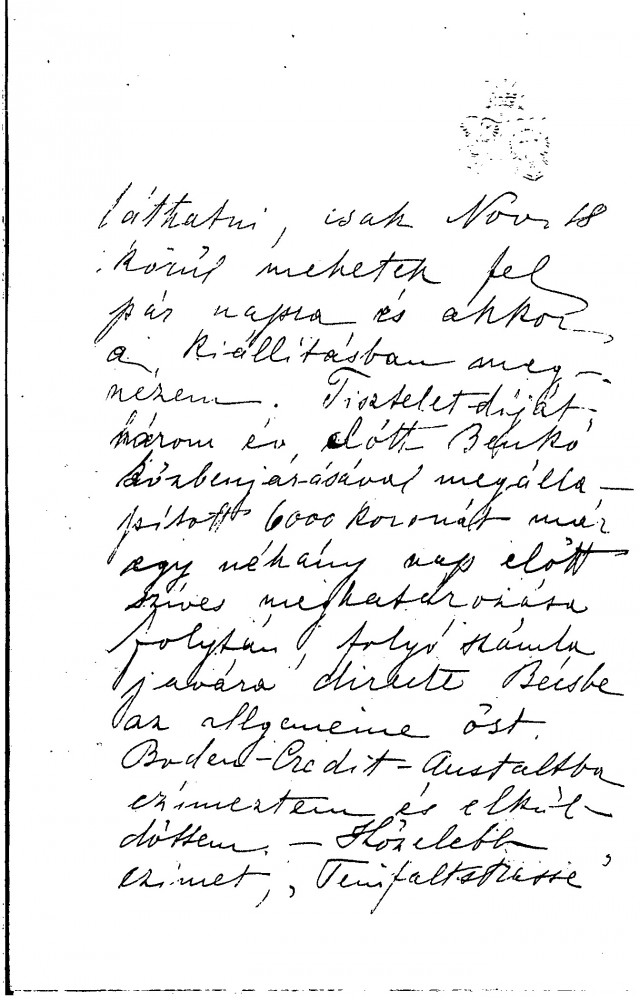 láthatni, csak Nov. 18
körül mehetek fel
pár napra és akkor
a kiállításban meg-
nézem. Tiszteletdíját
három év előtt Benkó
közbenjárásával megálla-
pított 6000 koronát már
egy néhány nap előtt
szíves meghatározása
folytán, folyó számla
javára directe Bécsbe
az allgemeine öst.
Boden-Credit-Anstaltba
czímeztem és elkül-
döttem. - Közelebb
czimet, "Teinfaltstrasse"